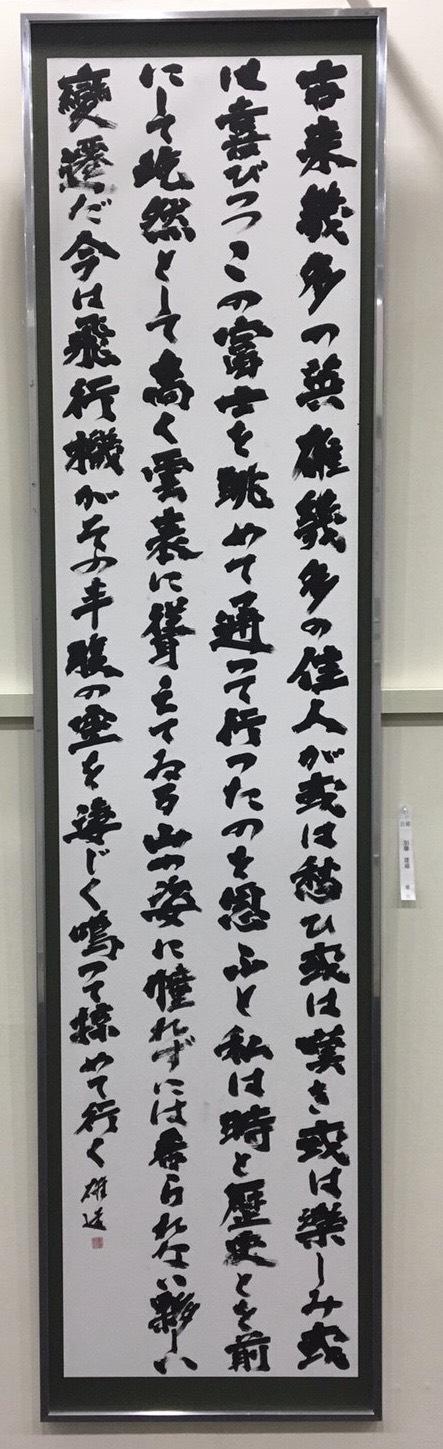 古来幾多の英雄幾多の佳人が或は愁ひ或は嘆き或は楽しみ或
は喜びつつこの富士を眺めて通つて行つたのを思ふと私は時と歴史とを前
にして屹然として高く雲表に聳えてゐる山の姿に憧れずには居られない夥しい
變遷だ今は飛行機がその半腹の空を凄じく鳴つて掠めて行く
雄
加藤